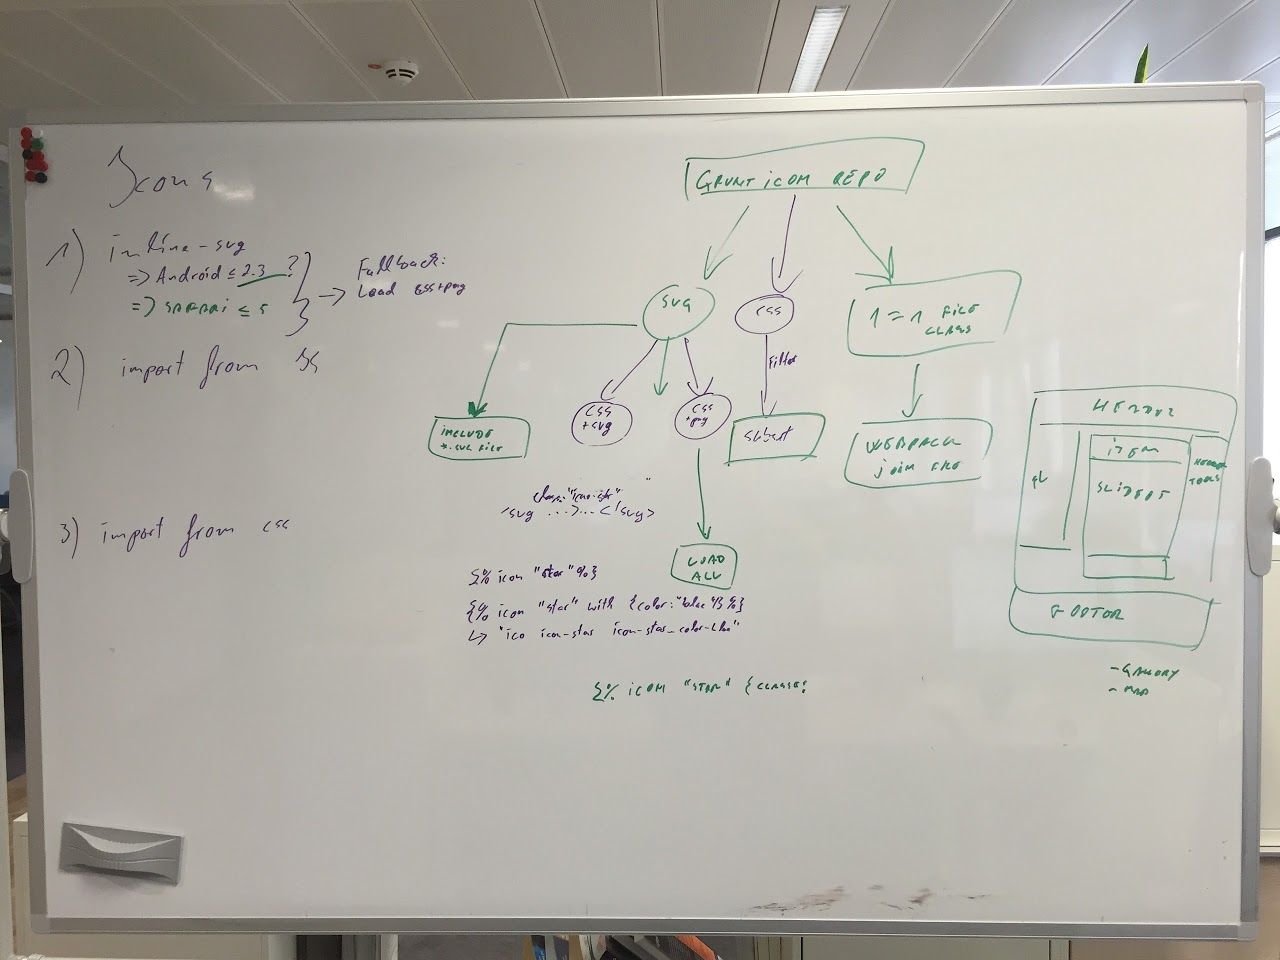 Icons
1) inline-svg
=> Android ≤ 2.3 ?
=> SAFARI ≤ 5
Fallback:
Load css+png
2) import from JS
3) import from css
GRUNT ICON REPO
SVG
CSS
1 = 1 FILE
CLASS
Filter
INCLUDE
*.SVG FILE
CSS
+svg
CSS
+png
subset
WEBPACK
JOIN FILE
class="icon-str"
<svg ...>...</svg>
LOAD
ALL
{% icon "star" %}
{% icon "star" with {color:"blue"} %}
↳ "ico icon-star icon-star_color-blue"
{% ICON "STAR" {CLASSE:
HEADER
ITEM
SLIDERS
TOOLS
FOOTER
- GALLERY
- MAP